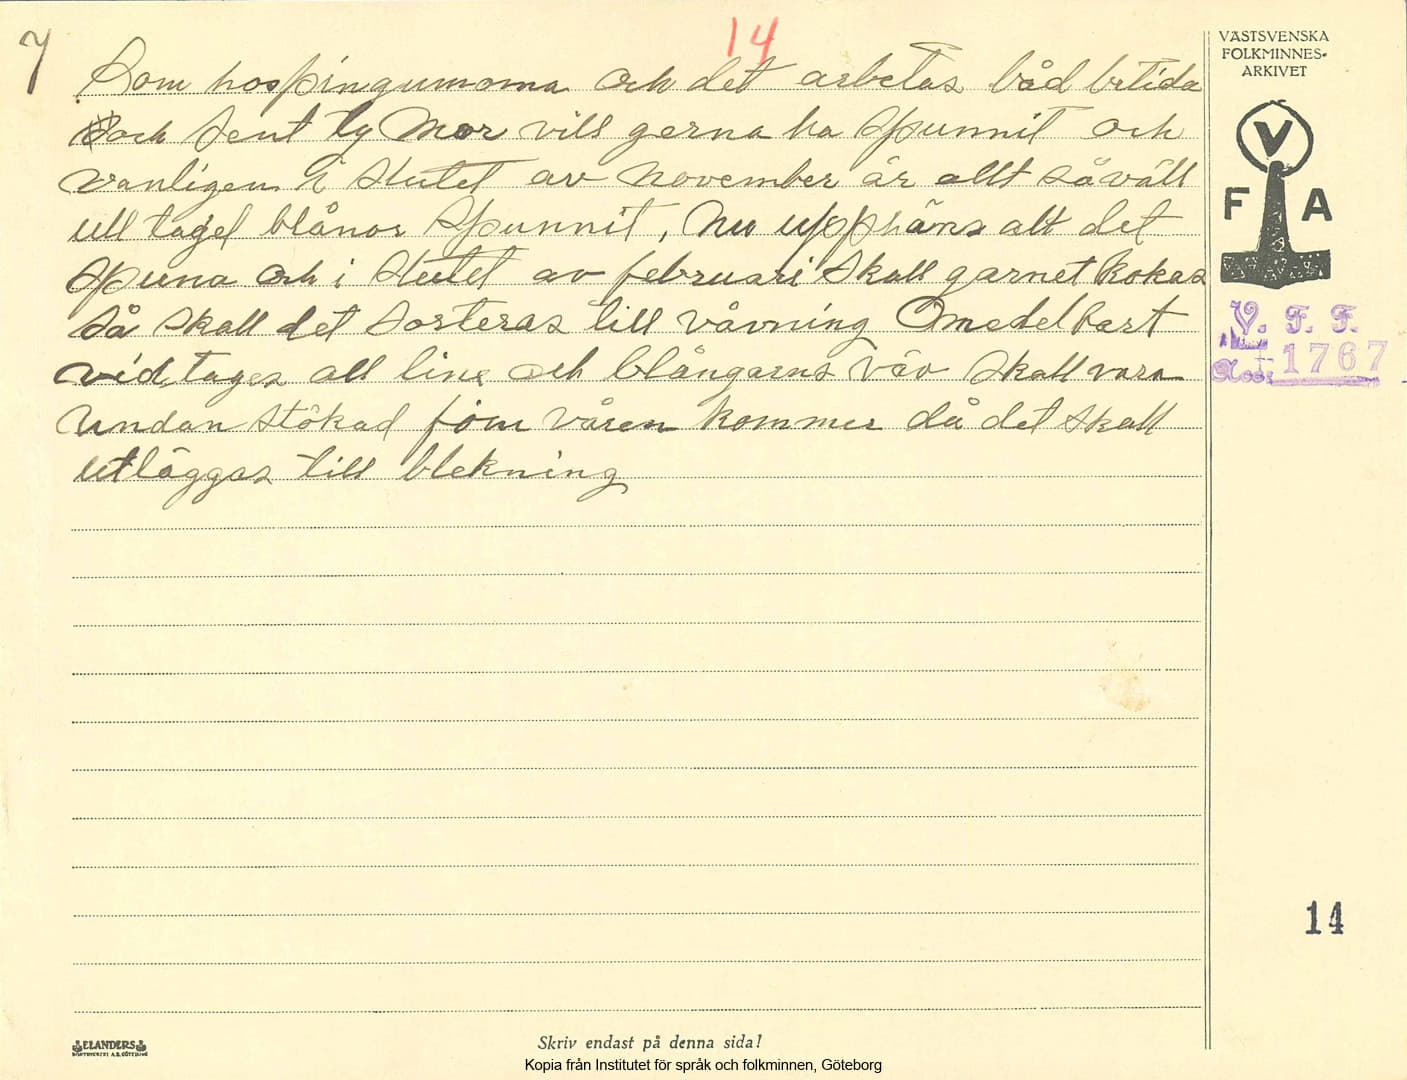 7
14
VÄSTSVENSKA
FOLKMINNES-
ARKIVET
Kom hospingumoma och det arbetas båd bitida
och sent ty Mor vill gerna ha spunnit och
vanligen i slutet av November är allt såväll
ull tagel blånor spunnit, Nu upphäns alt det
spuna och i slutet av februari skall garnet kokas
så skall det sorteras till vävning Omedelbart
vidtages all line och blångarns väv skall vara
undan stökad före våren kommer då det skall
utläggas till blekning
V
F A
V. F. F.
Acc: 1767
14
ELANDERS
BOKTRYCKERI A.B. GÖTEBORG
Skriv endast på denna sida!
Kopia från Institutet för språk och folkminnen, Göteborg